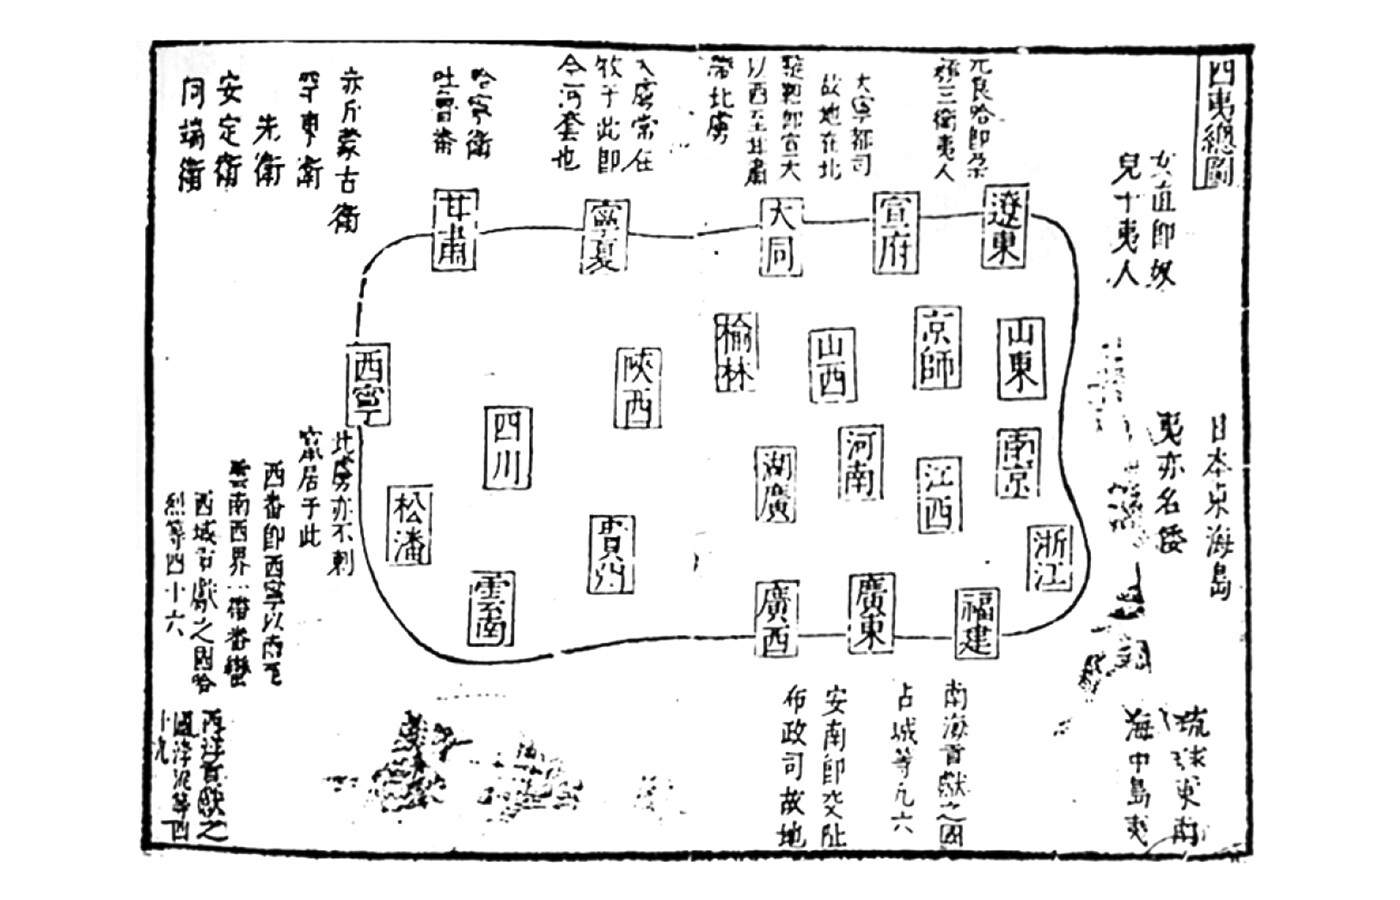 四夷總圖
女直即奴
兒干夷人
日本東海島
夷亦名倭
琉球東南
海中島夷
兀良哈即朶
顔三衛夷人
大寧都司
故地在北
韃靼即宣大
以西至甘肅
帶北虜
大虜常在
牧于此即
今河套也
哈密衛
吐魯番
赤斤蒙古衛
罕東衛
先衛
安定衛
阿端衛
遼東
宣府
大同
寧夏
甘肅
山東
京師
山西
榆林
陜西
西寧
南京
江西
河南
湖廣
四川
松潘
浙江
福建
廣東
廣西
貴州
雲南
此虜亦不剌
竄居于此
西番即西寧以南至
雲南西界一帶番蠻
西域貢獻之國哈
烈等四十六
西洋貢獻之
國浡泥等四
十九
南海貢獻之國
占城等九六
安南即交阯
布政司故地